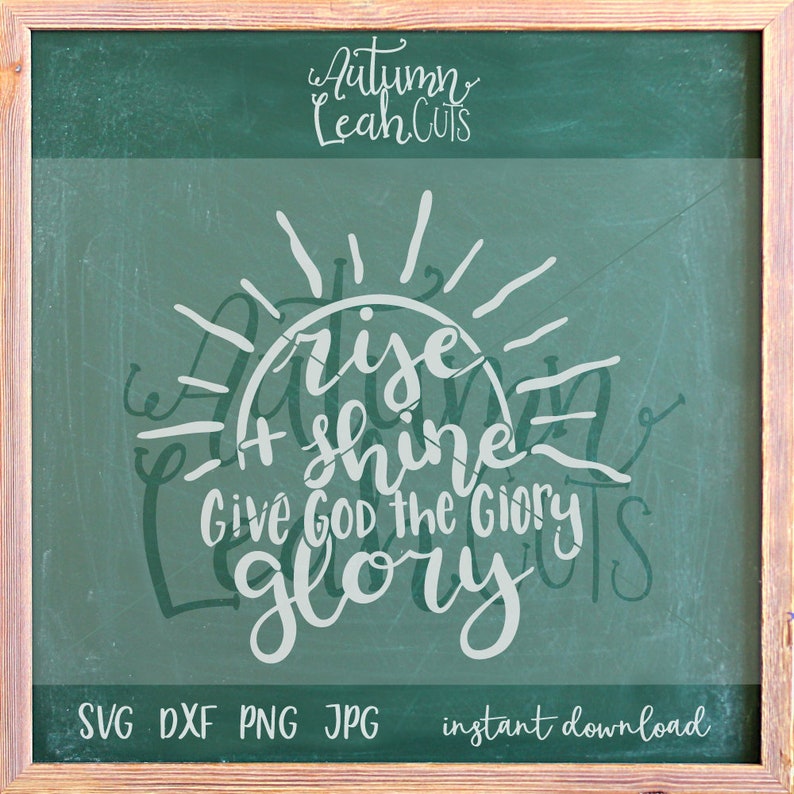 Autumn
Leah Cuts
rise
+ shine
Give God the Glory
glory
Autumn
Leah Cuts
SVG DXF PNG JPG instant download